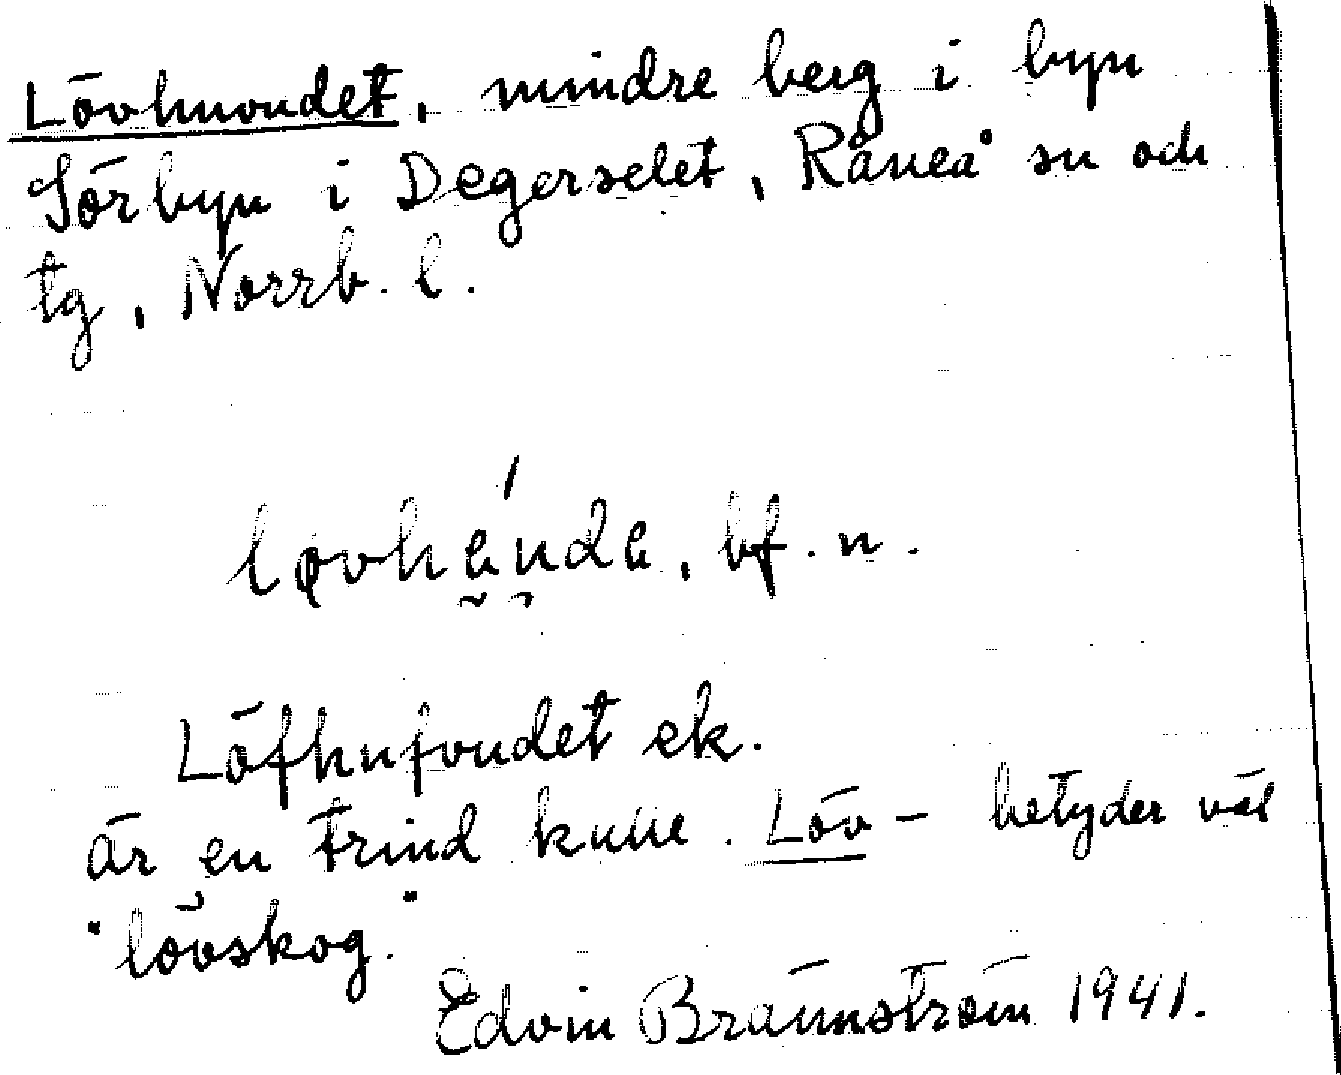 Lövhuvudet, mindre berg i byn
Sörbyn i Degerselet, Råneå sn och
tg, Norrb. l.
bf. n.
Löfhufvudet ek.
är en trind kulle. Löv- betyder väl
"lövskog."
Edvin Brännström 1941.